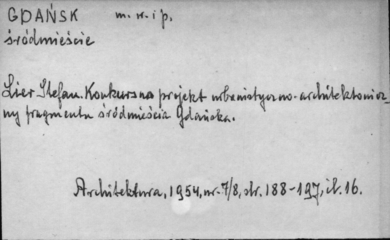 GDAŃSK m. w. i p.
śródmieście
Lier Stefan. Konkurs na projekt urbanistyczno-architektonicz
ny fragmentu śródmieścia Gdańska.
Architektura, 1954, nr. 7/8, str. 188-197, il. 16.